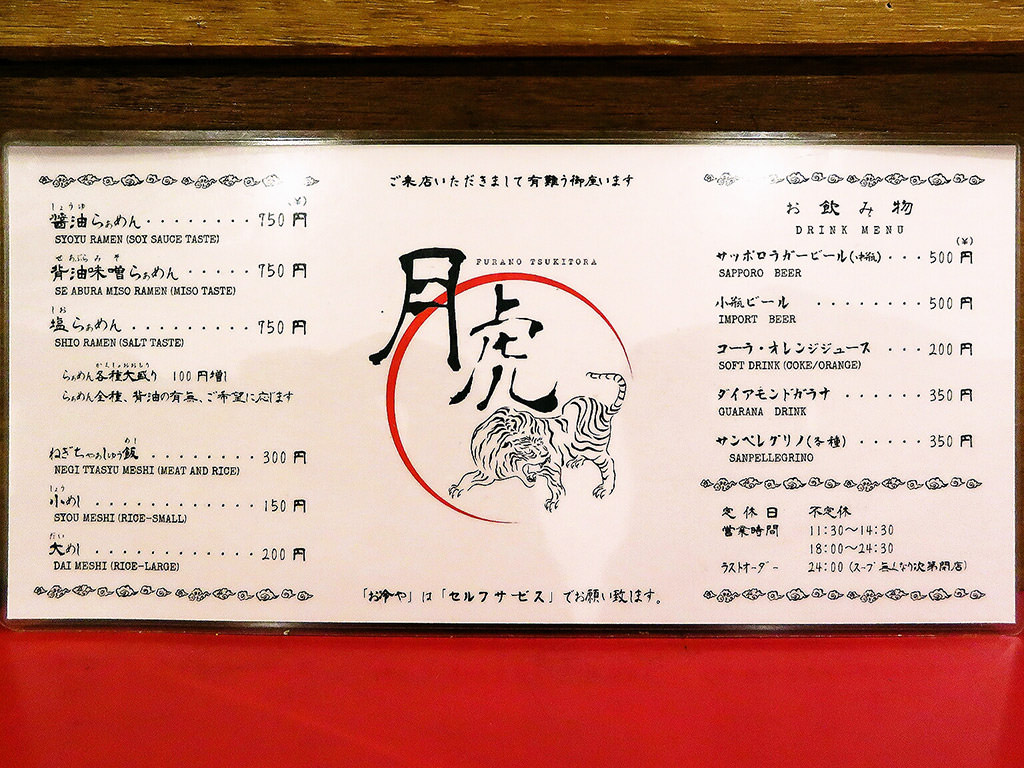 しょうゆ
(¥)
醤油らぁめん・・・・・・・・750円
SYOYU RAMEN(SOY SAUCE TASTE)
せあぶらみそ
背油味噌らぁめん・・・・・750円
SE ABURA MISO RAMEN(MISO TASTE)
しお
塩らぁめん・・・・・・・・・750円
SHIO RAMEN(SALT TASTE)
らぁめん各種大盛り 100円増し
らぁめん全種、背油の有無、ご希望に応じます
めし
ねぎちゃぁしゅう飯・・・・・・・・300円
NEGI TYASYU MESHI(MEAT AND RICE)
しょう
小めし・・・・・・・・・・・・150円
SYOU MESHI(RICE-SMALL)
だい
大めし・・・・・・・・・・・・200円
DAI MESHI(RICE-LARGE)
ご来店いただきまして有難う御座います
FURANO TSUKITORA
月虎
「お冷や」は「セルフサービス」でお願い致します。
お飲み物
DRINK MENU
(¥)
サッポロラガービール(中瓶)・・・500円
SAPPORO BEER
小瓶ビール・・・・・・・・500円
IMPORT BEER
コーラ・オレンジジュース・・・200円
SOFT DRINK(COKE/ORANGE)
ダイアモンドガラナ・・・・・・350円
GUARANA DRINK
サンペレグリノ(各種)・・・・・350円
SANPELLEGRINO
定休日 不定休
営業時間 11:30〜14:30
18:00〜24:30
ラストオーダー 24:00(スープ無くなり次第閉店)